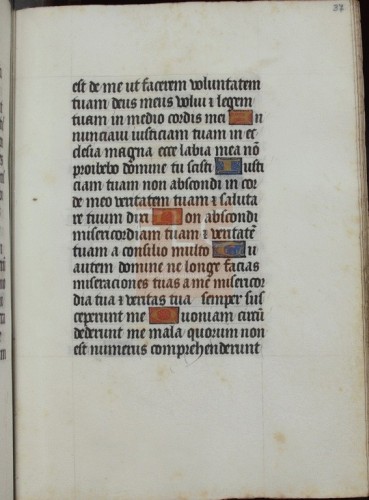 37
est de me ut facerem voluntatem
tuam deus meus volui ⁊ legem
tuam in medio cordis mei A n
nunciavi iusticiam tuam in ec
clesia magna ecce labia mea nō
proibebo domine tu scisti I usti
ciam tuam non abscondi in cor
de meo veritatem tuam ⁊ saluta
re tuum dixi N on abscondi
misericordiam tuam ⁊ veritatē
tuam a consilio multo T u
autem domine ne longe facias
miseraciones tuas a me misericor
dia tua ⁊ veritas tua semper sus
ceperunt me Q uoniam circū
dederunt me mala quorum non
est numerus comprehenderunt